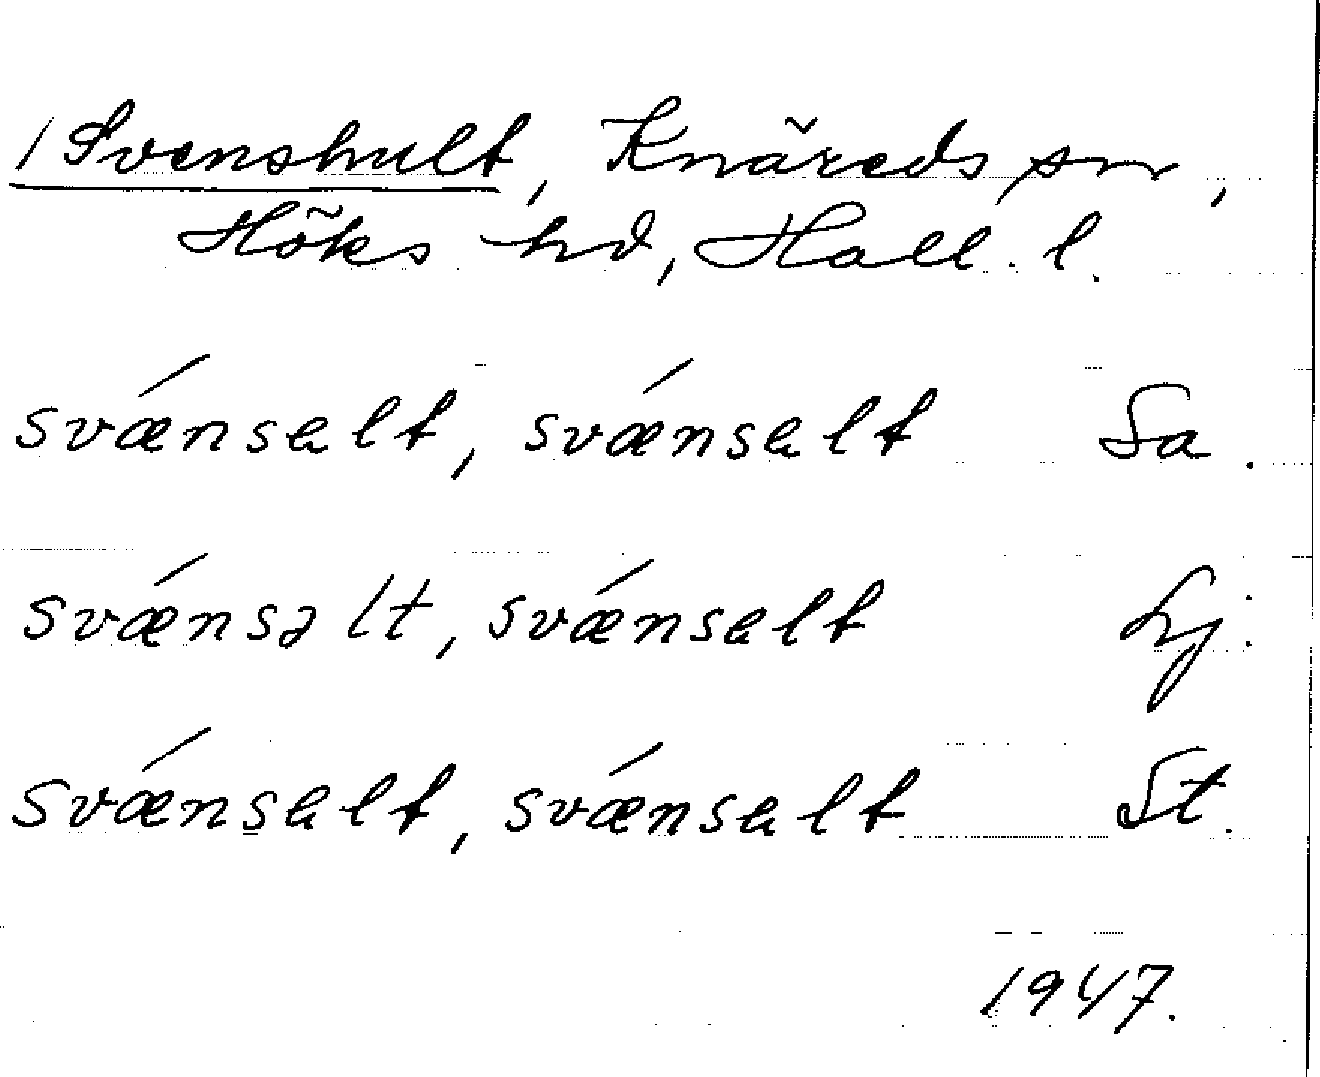 1 Svenshult, Knäreds sn,
Höks hd, Hall. l.
svǽnsalt, svǽnsalt Sa.
svǽnsəlt, svǽnsalt Lj.
svǽnsalt, svǽnsalt St.
1947.